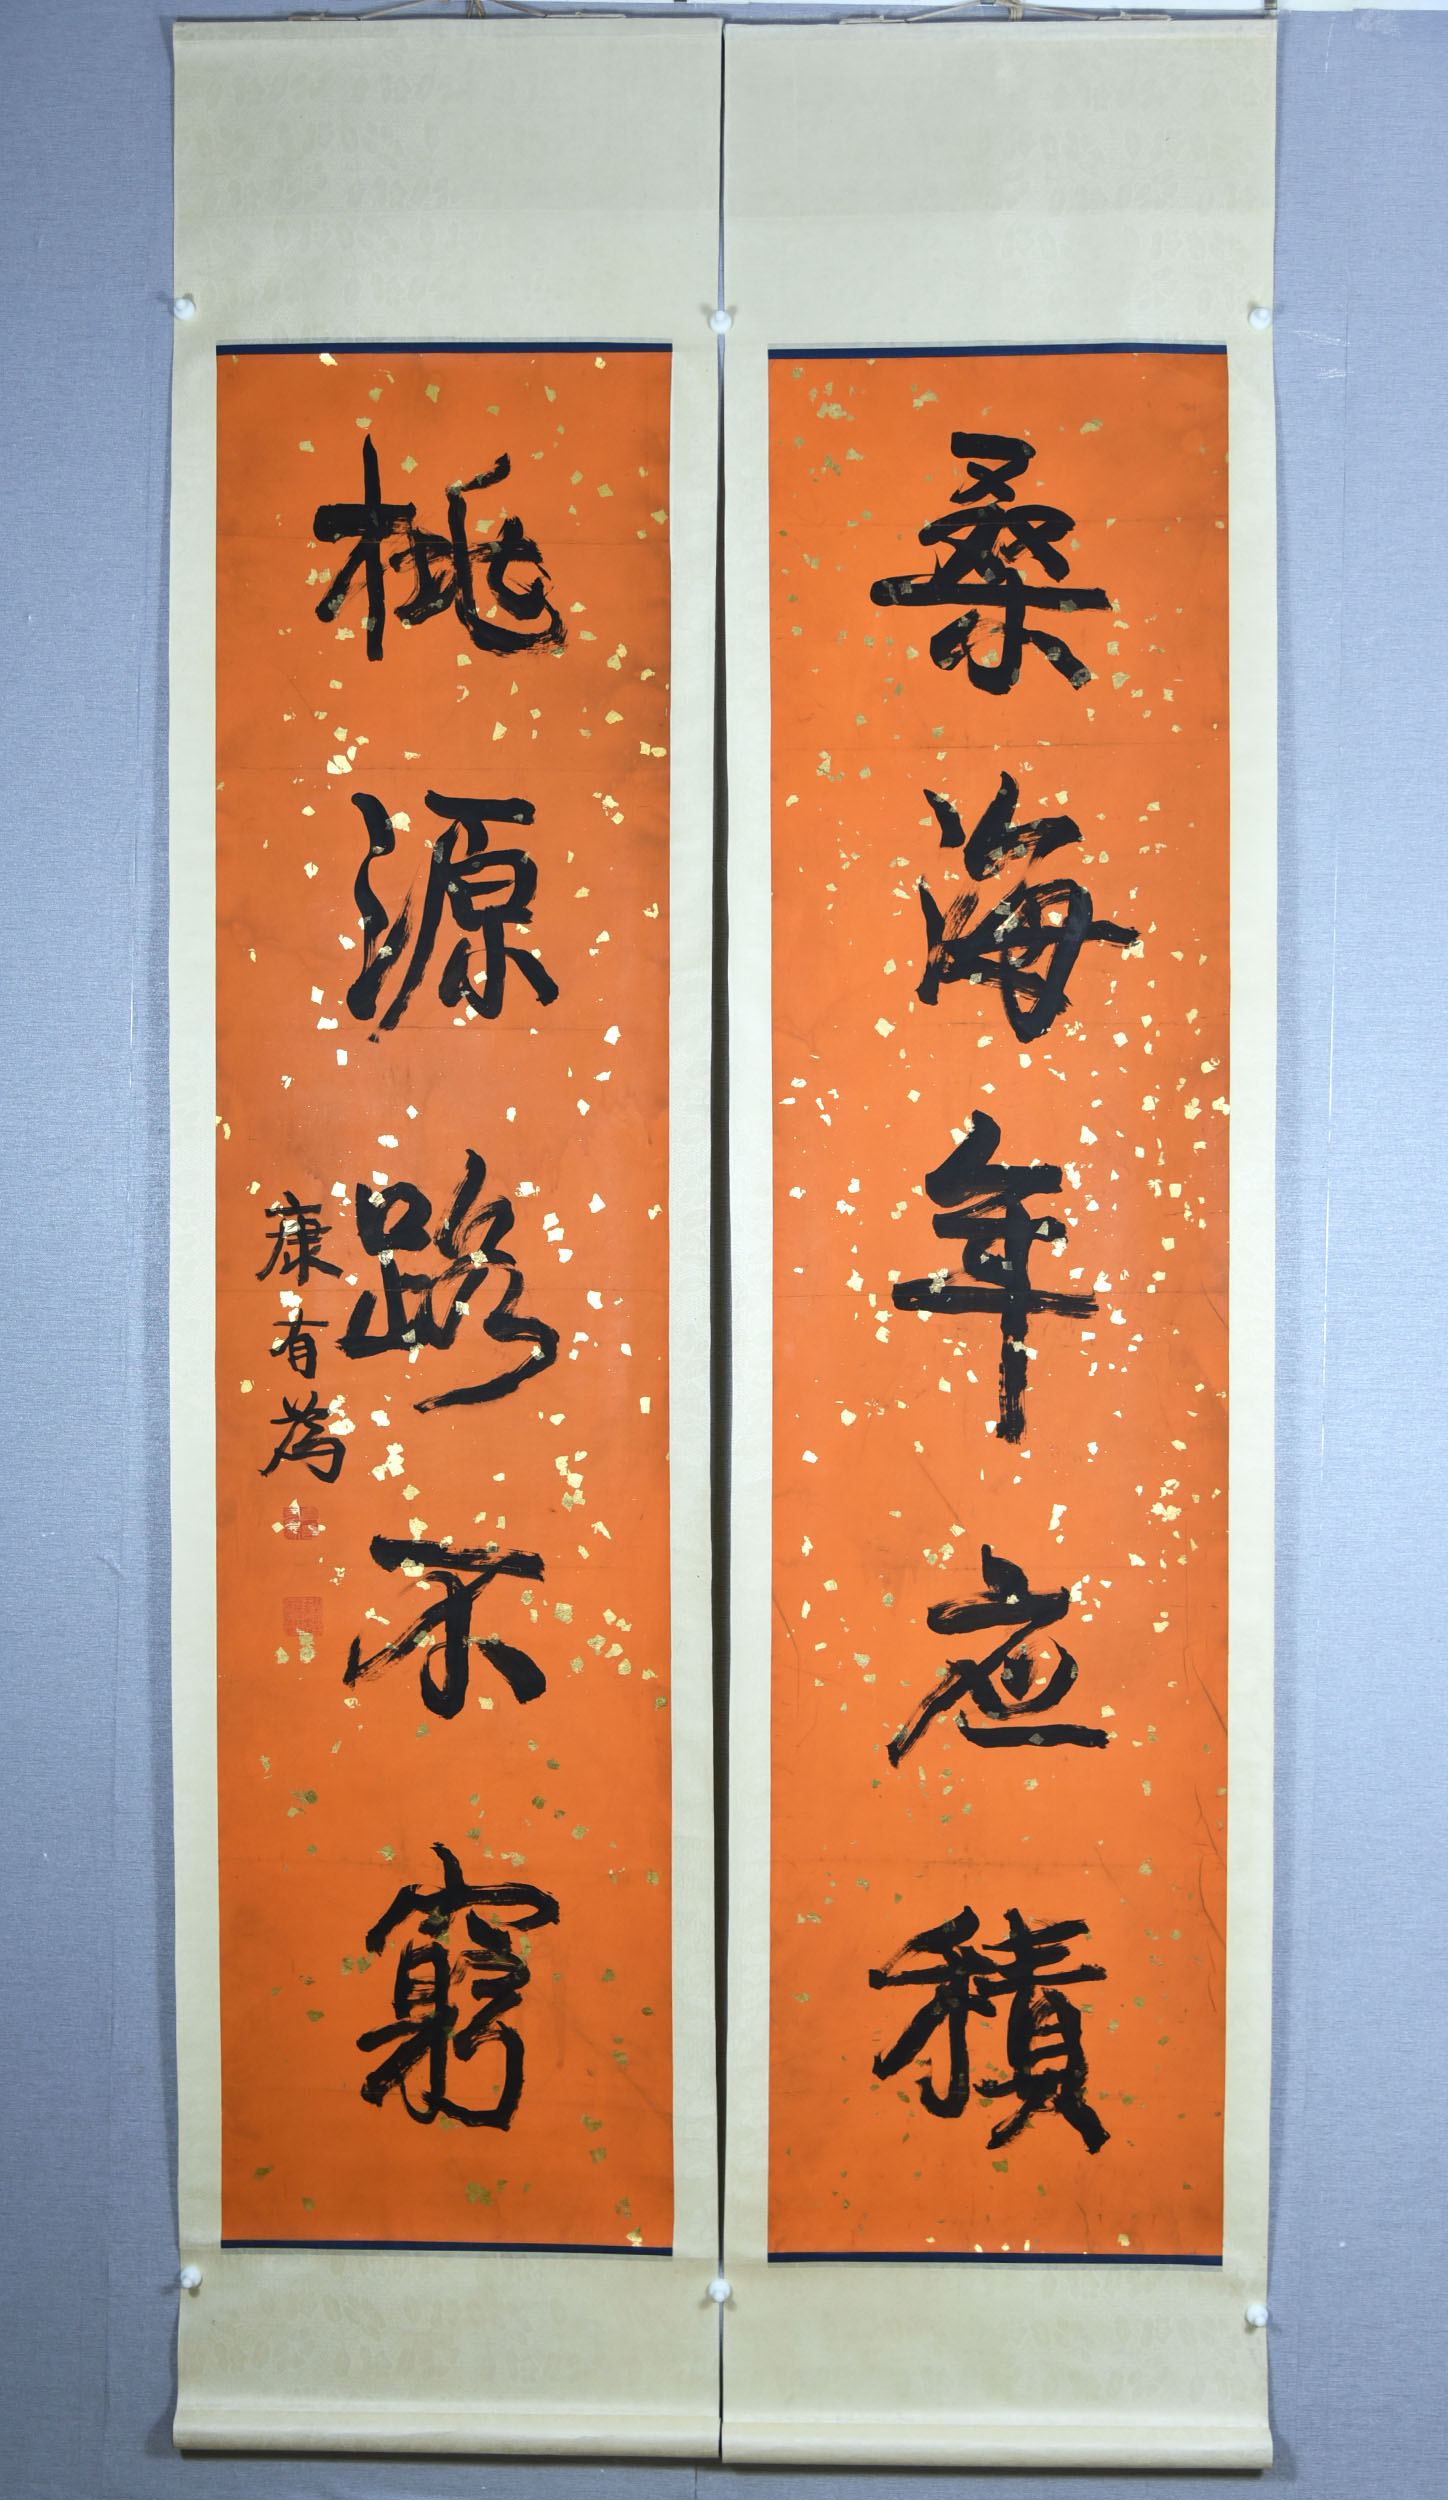 桑海年應積
桃源路不窮
康有為